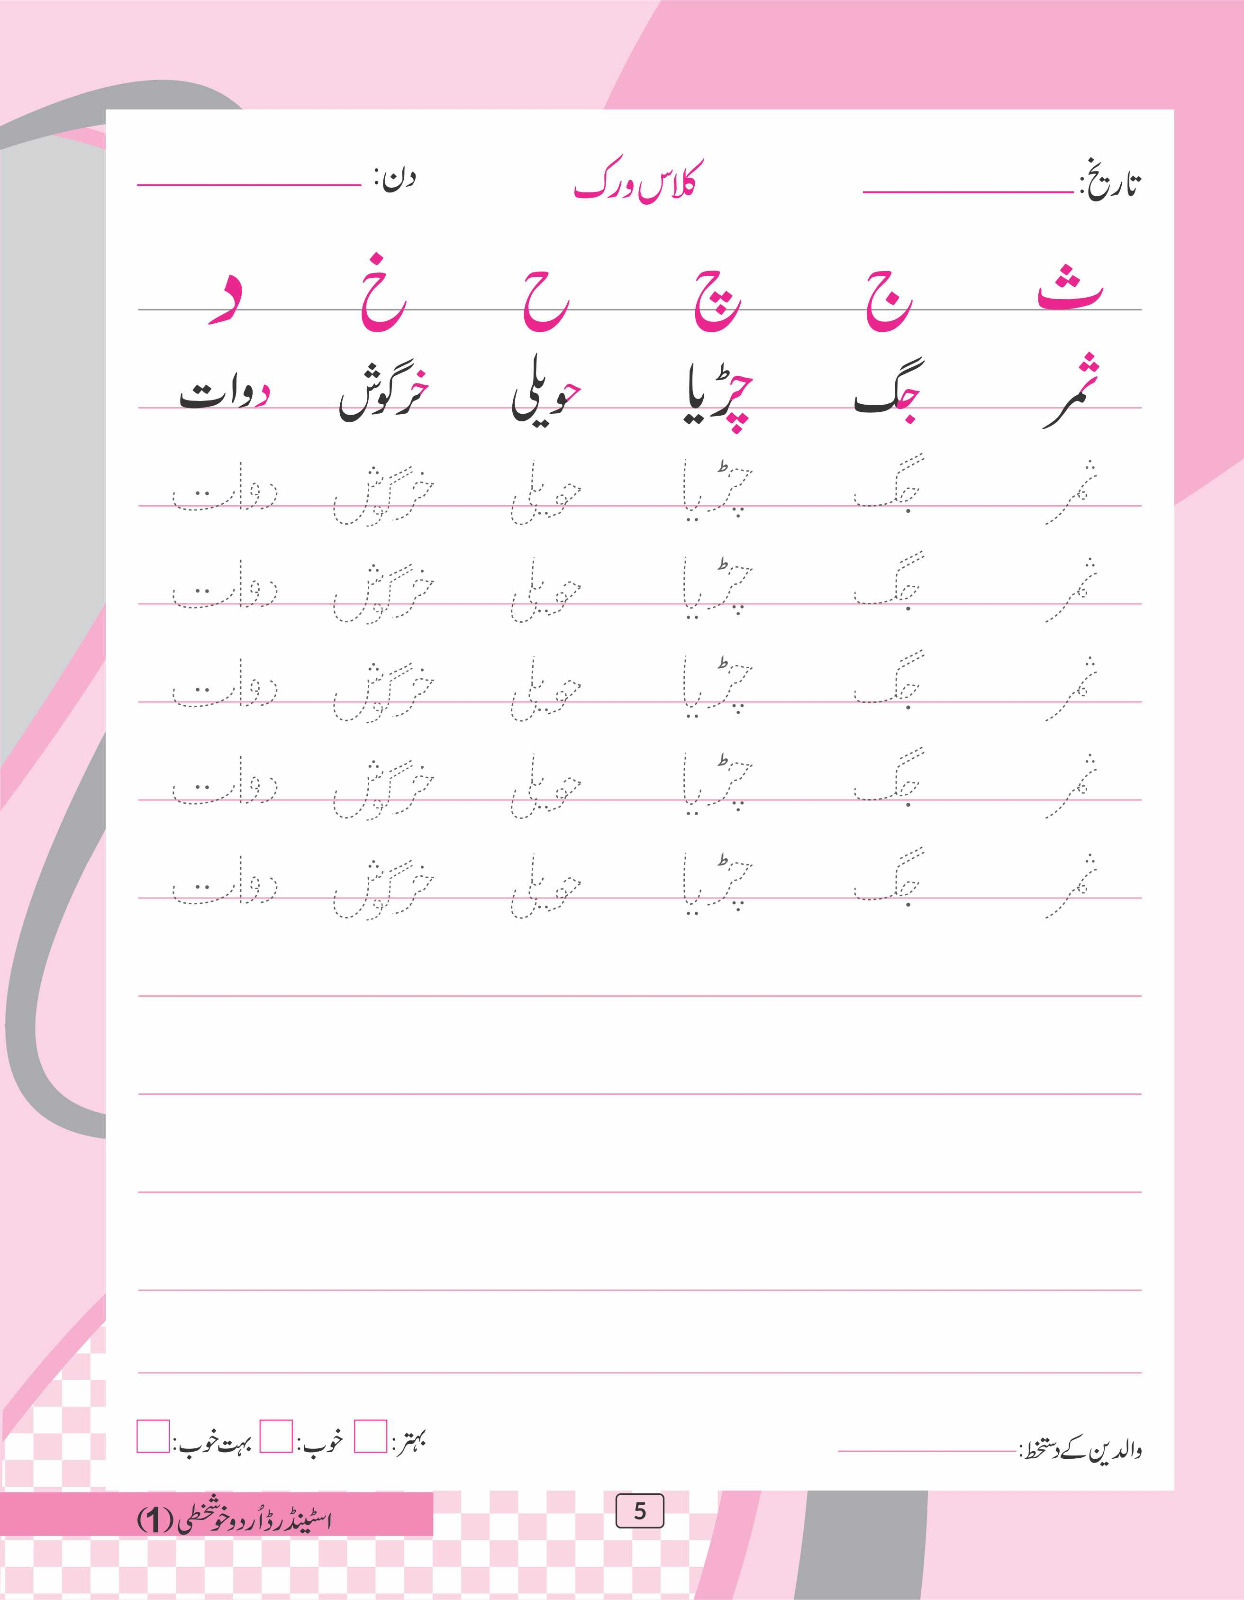 تاریخ: کلاس ورک دن:
ث ج چ ح خ د
ثمر جگ چڑیا حویلی خرگوش دوات
ثمر جگ چڑیا حویلی خرگوش دوات
ثمر جگ چڑیا حویلی خرگوش دوات
ثمر جگ چڑیا حویلی خرگوش دوات
ثمر جگ چڑیا حویلی خرگوش دوات
ثمر جگ چڑیا حویلی خرگوش دوات
والدین کے دستخط: بہتر: خوب: بہت خوب:
5
اسٹینڈرڈ اُردو خوشخطی (1)